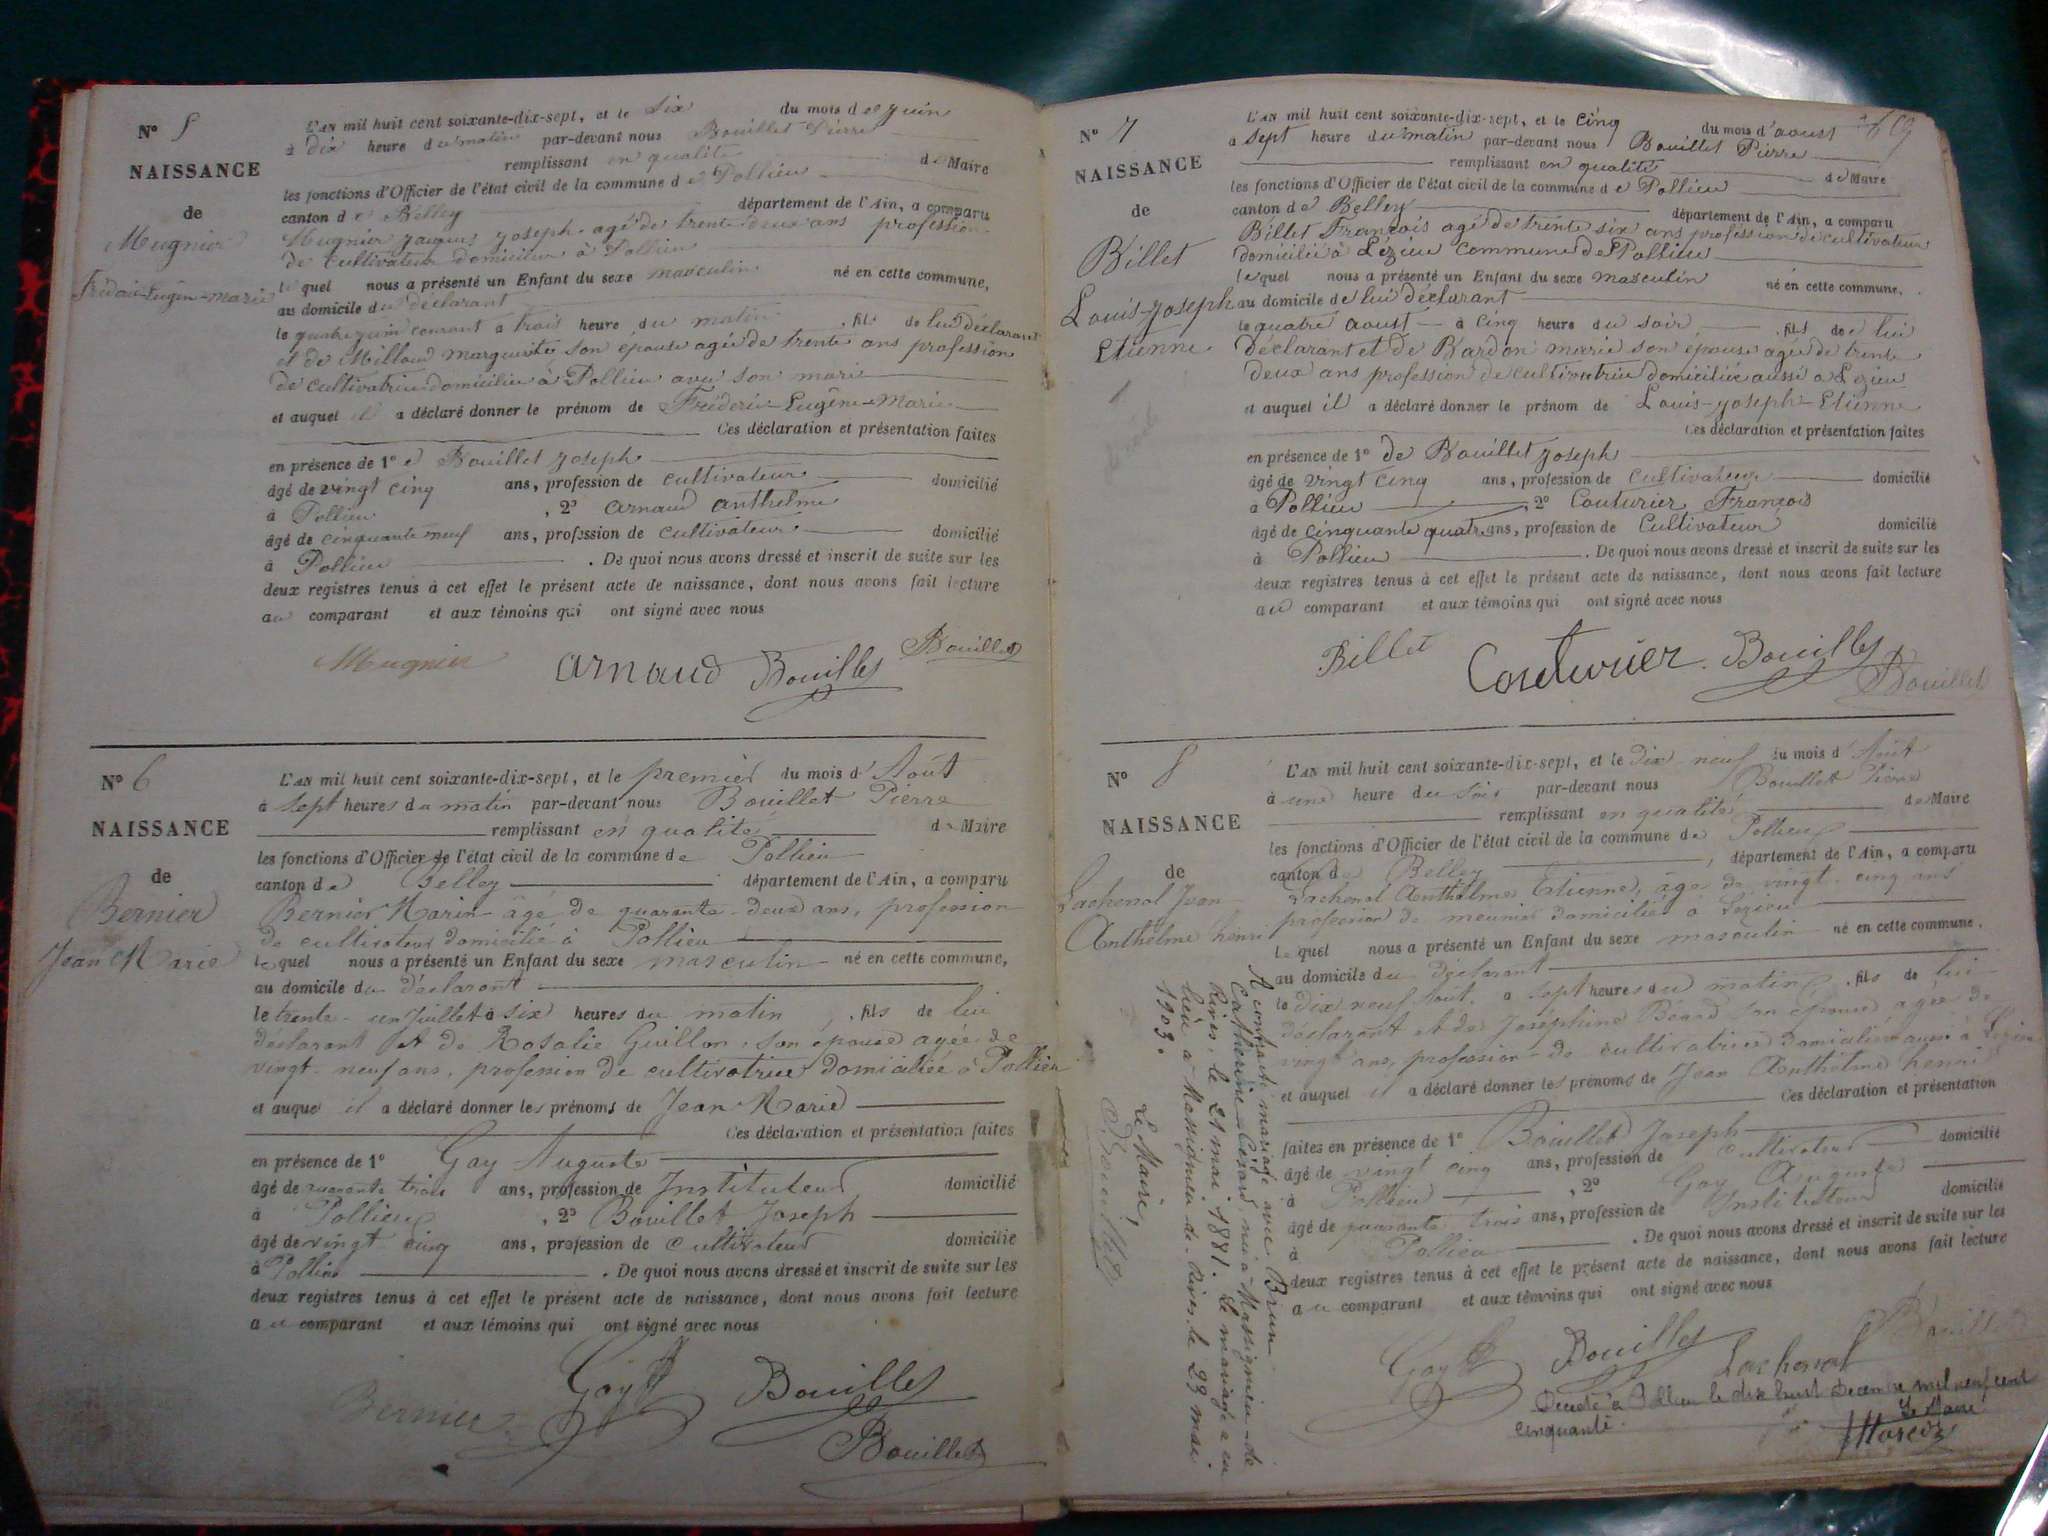 N° 5
NAISSANCE
de
Mugnier
Frédéric-Eugène-Marie
L'AN mil huit cent soixante-dix-sept, et le six du mois de juin
à dix heure du matin par-devant nous Bouillet Pierre
remplissant en qualité de Maire
les fonctions d'Officier de l'état civil de la commune de Pollieu
canton de Belley département de l'Ain, a comparu
Mugnier Jacques Joseph agé de trente-deux ans profession
de cultivateur domicilié à Pollieu
lequel nous a présenté un Enfant du sexe masculin né en cette commune,
au domicile du déclarant
le quatre juin courant à trois heure du matin, fils de lui déclarant
et de Milloud marguerite son epouse agée de trente ans profession
de cultivatrice domiciliée à Pollieu avec son mari
et auquel il a déclaré donner le prénom de Fréderic-Eugêne-Marie
Ces déclaration et présentation faites
en présence de 1° Bouillet joseph
âgé de vingt cinq ans, profession de cultivateur domicilié
à Pollieu, 2° arnaud anthelme
âgé de cinquante neuf ans, profession de cultivateur domicilié
à Pollieu. De quoi nous avons dressé et inscrit de suite sur les
deux registres tenus à cet effet le présent acte de naissance, dont nous avons fait lecture
au comparant et aux témoins qui ont signé avec nous
Mugnier arnaud Bouillet Bouillet
N° 6
NAISSANCE
de
Bernier
Jean Marie
L'AN mil huit cent soixante-dix-sept, et le premier du mois d'Août
à sept heures du matin par-devant nous Bouillet Pierre
remplissant en qualité de Maire
les fonctions d'Officier de l'état civil de la commune de Pollieu
canton de Belley département de l'Ain, a comparu
Bernier Marin âgé de quarante-deux ans, profession
de cultivateur domicilié à Pollieu
lequel nous a présenté un Enfant du sexe masculin né en cette commune,
au domicile du déclarant
le trente-un Juillet à six heures du matin, fils de lui
déclarant et de Rosalie Guillon, son épouse agée de
vingt-neuf ans, profession de cultivatrice domiciliée à Pollieu
et auquel il a déclaré donner les prénoms de Jean Marie
Ces déclaration et présentation faites
en présence de 1° Gay Auguste
âgé de quarante trois ans, profession de Instituteur domicilié
à Pollieu, 2° Bouillet Joseph
âgé de vingt cinq ans, profession de cultivateur domicilié
à Pollieu. De quoi nous avons dressé et inscrit de suite sur les
deux registres tenus à cet effet le présent acte de naissance, dont nous avons fait lecture
au comparant et aux témoins qui ont signé avec nous
Bernier Gay Bouillet
Bouillet
N° 7
NAISSANCE
de
Billet
Louis-joseph
Etienne
L'AN mil huit cent soixante-dix-sept, et le cinq du mois d'aoust
à sept heure du matin par-devant nous Bouillet Pierre
remplissant en qualité de Maire
les fonctions d'Officier de l'état civil de la commune de Pollieu
canton de Belley département de l'Ain, a comparu
Billet François agé de trente six ans profession de cultivateur
domicilié à Lézieu commune de Pollieu
lequel nous a présenté un Enfant du sexe masculin né en cette commune,
au domicile de lui déclarant
le quatre aoust à cinq heure du soir, fils de lui
déclarant et de Bardon marie son epouse agée de trente
deux ans profession de cultivatrice domiciliée aussi a Lezieu
et auquel il a déclaré donner le prénom de Louis-joseph-Etienne
Ces déclaration et présentation faites
en présence de 1° de Bouillet joseph
âgé de vingt cinq ans, profession de Cultivateur domicilié
à Pollieu, 2° Couturier François
âgé de cinquante quatre ans, profession de Cultivateur domicilié
à Pollieu. De quoi nous avons dressé et inscrit de suite sur les
deux registres tenus à cet effet le présent acte de naissance, dont nous avons fait lecture
au comparant et aux témoins qui ont signé avec nous
Billet Couturier Bouillet Bouillet
N° 8
NAISSANCE
de
Lachenal Jean
Anthelme henri
L'AN mil huit cent soixante-dix-sept, et le dix-neuf du mois d'Août
à une heure du soir par-devant nous Bouillet Pierre
remplissant en qualité de Maire
les fonctions d'Officier de l'état civil de la commune de Pollieu
canton de Belley, département de l'Ain, a comparu
Lachenal Anthelme Etienne, âgé de vingt-cinq ans
profession de meunier domicilié à Lezieu
lequel nous a présenté un Enfant du sexe masculin né en cette commune,
au domicile du déclarant
le dix neuf Août à sept heures du matin, fils de lui
déclarant et de Joséphine Béard son épouse agée de
vingt ans, profession de cultivatrice domiciliée aussi à Lezieu
et auquel il a déclaré donner les prénoms de Jean Anthelme henri
Ces déclaration et présentation
faites en présence de 1° Bouillet Joseph
âgé de vingt cinq ans, profession de cultivateur domicilié
à Pollieu, 2° Gay Auguste
âgé de quarante trois ans, profession de Instituteur domicilié
à Pollieu. De quoi nous avons dressé et inscrit de suite sur les
deux registres tenus à cet effet le présent acte de naissance, dont nous avons fait lecture
au comparant et aux témoins qui ont signé avec nous
Gay Bouillet Lachenal Bouillet
Décédé à Pollieu le dix huit Décembre mil neuf cent
cinquante.
Le Maire
A contracté mariage avec Brun
Catherine née à Massignieu-de
Rives, le 21 mai 1881. Le mariage a eu
lieu à Massignieu-de-Rives le 23 mai
1903.
Le Maire,
Bouillet